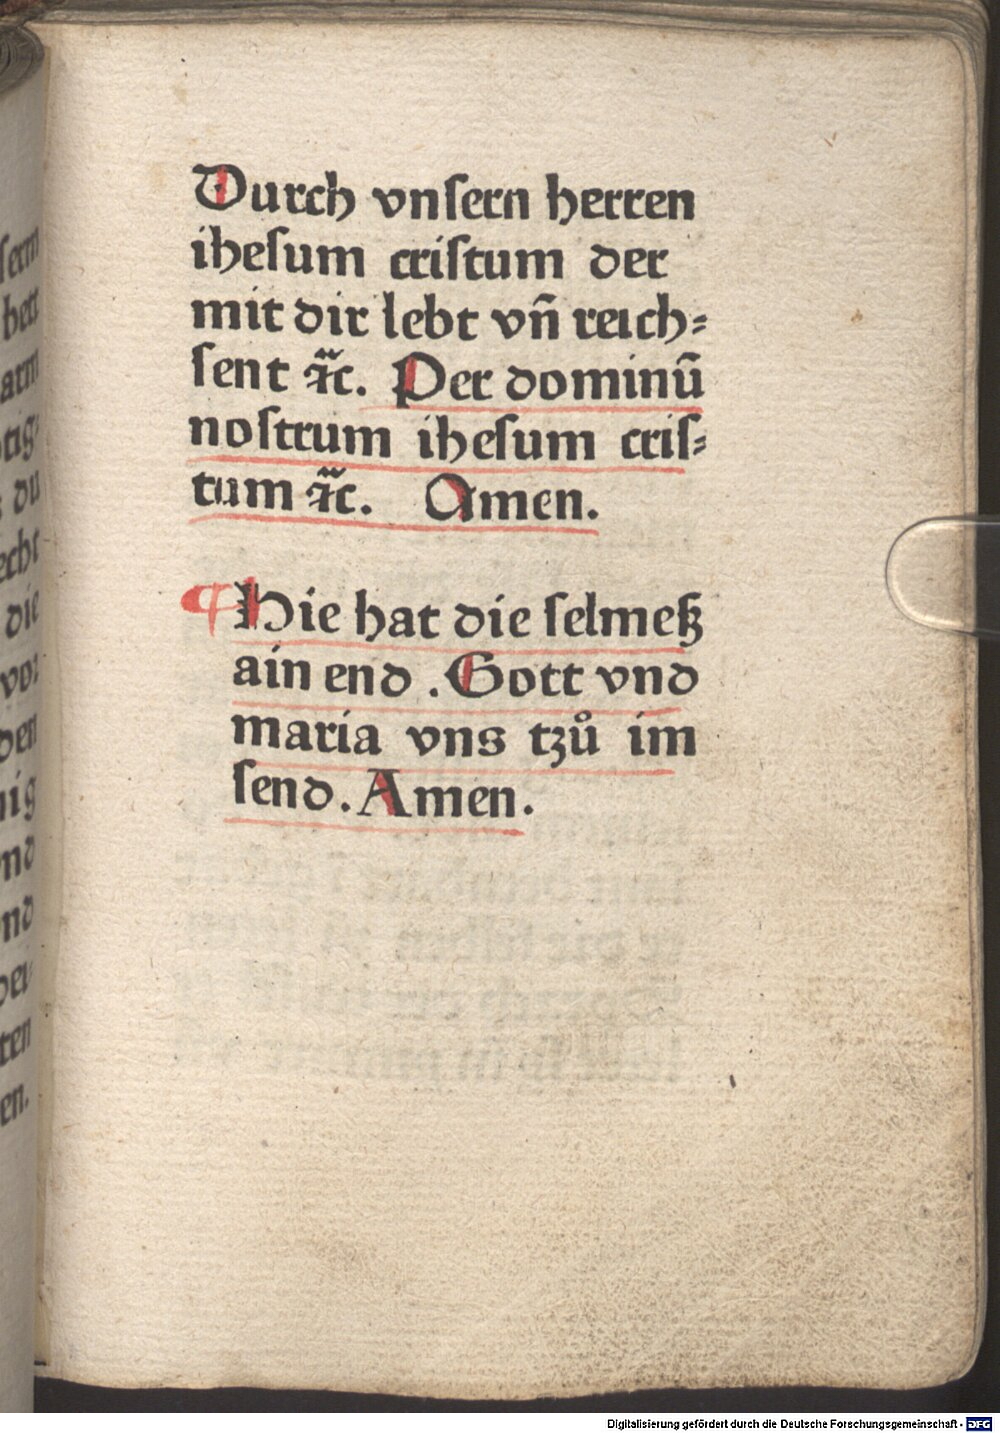 Durch vnſern herren
iheſum criſtum der
mit dir lebt vn̄ reich⸗
ſent ⁊c̃. Per dominū
noſtrum iheſum criſ⸗
tum ⁊c̃. Amen.
¶ Hie hat die ſelmeß
ain end . Gott vnd
maria vns tzů im
ſend. Amen.
Digitalisierung gefördert durch die Deutsche Forschungsgemeinschaft - DFG